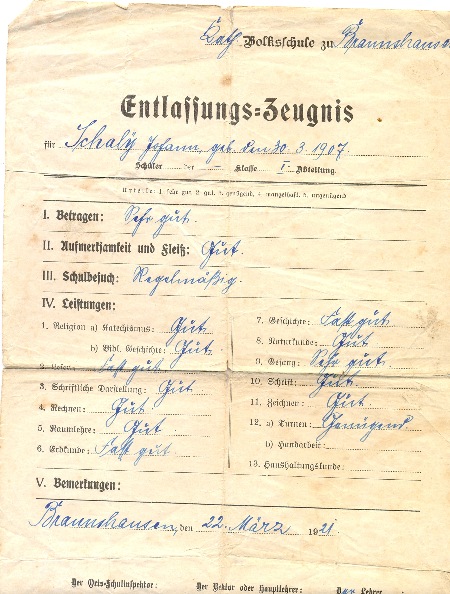 Kath. Volksschule zu Brannshausen
Entlassungs-Zeugnis
für Schalÿ Johann, geb. den 30. 3. 1907.
Schüler der Klasse I. Abteilung.
Urteile: 1. sehr gut, 2. gut, 3. genügend, 4. mangelhaft, 5. ungenügend
I. Betragen: Sehr gut.
II. Aufmerksamkeit und Fleiß: Gut.
III. Schulbesuch: Regelmäßig.
IV. Leistungen:
1. Religion a) Katechismus: Gut
b) Bibl. Geschichte: Gut.
2. Lesen: Fast gut
3. Schriftliche Darstellung: Gut
4. Rechnen: Gut
5. Raumlehre: Gut
6. Erdkunde: Fast gut
7. Geschichte: Fast gut
8. Naturkunde: Gut
9. Gesang: Sehr gut
10. Schrift: Gut
11. Zeichnen: Gut
12. a) Turnen: Genügend
b) Handarbeit:
13. Haushaltungskunde:
V. Bemerkungen:
Brannshausen, den 22. März 1921.
Der Orts-Schulinspektor: Der Rektor oder Hauptlehrer: Der Lehrer